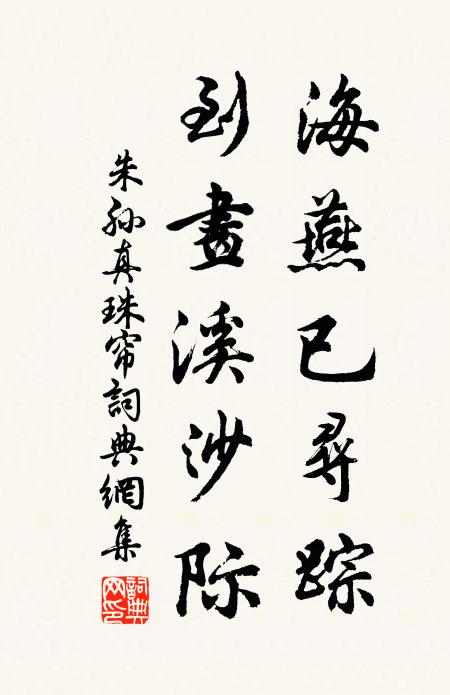 海燕已尋踪
到畫溪沙际
朱孙真珠帘詞典網集
詞典
网印